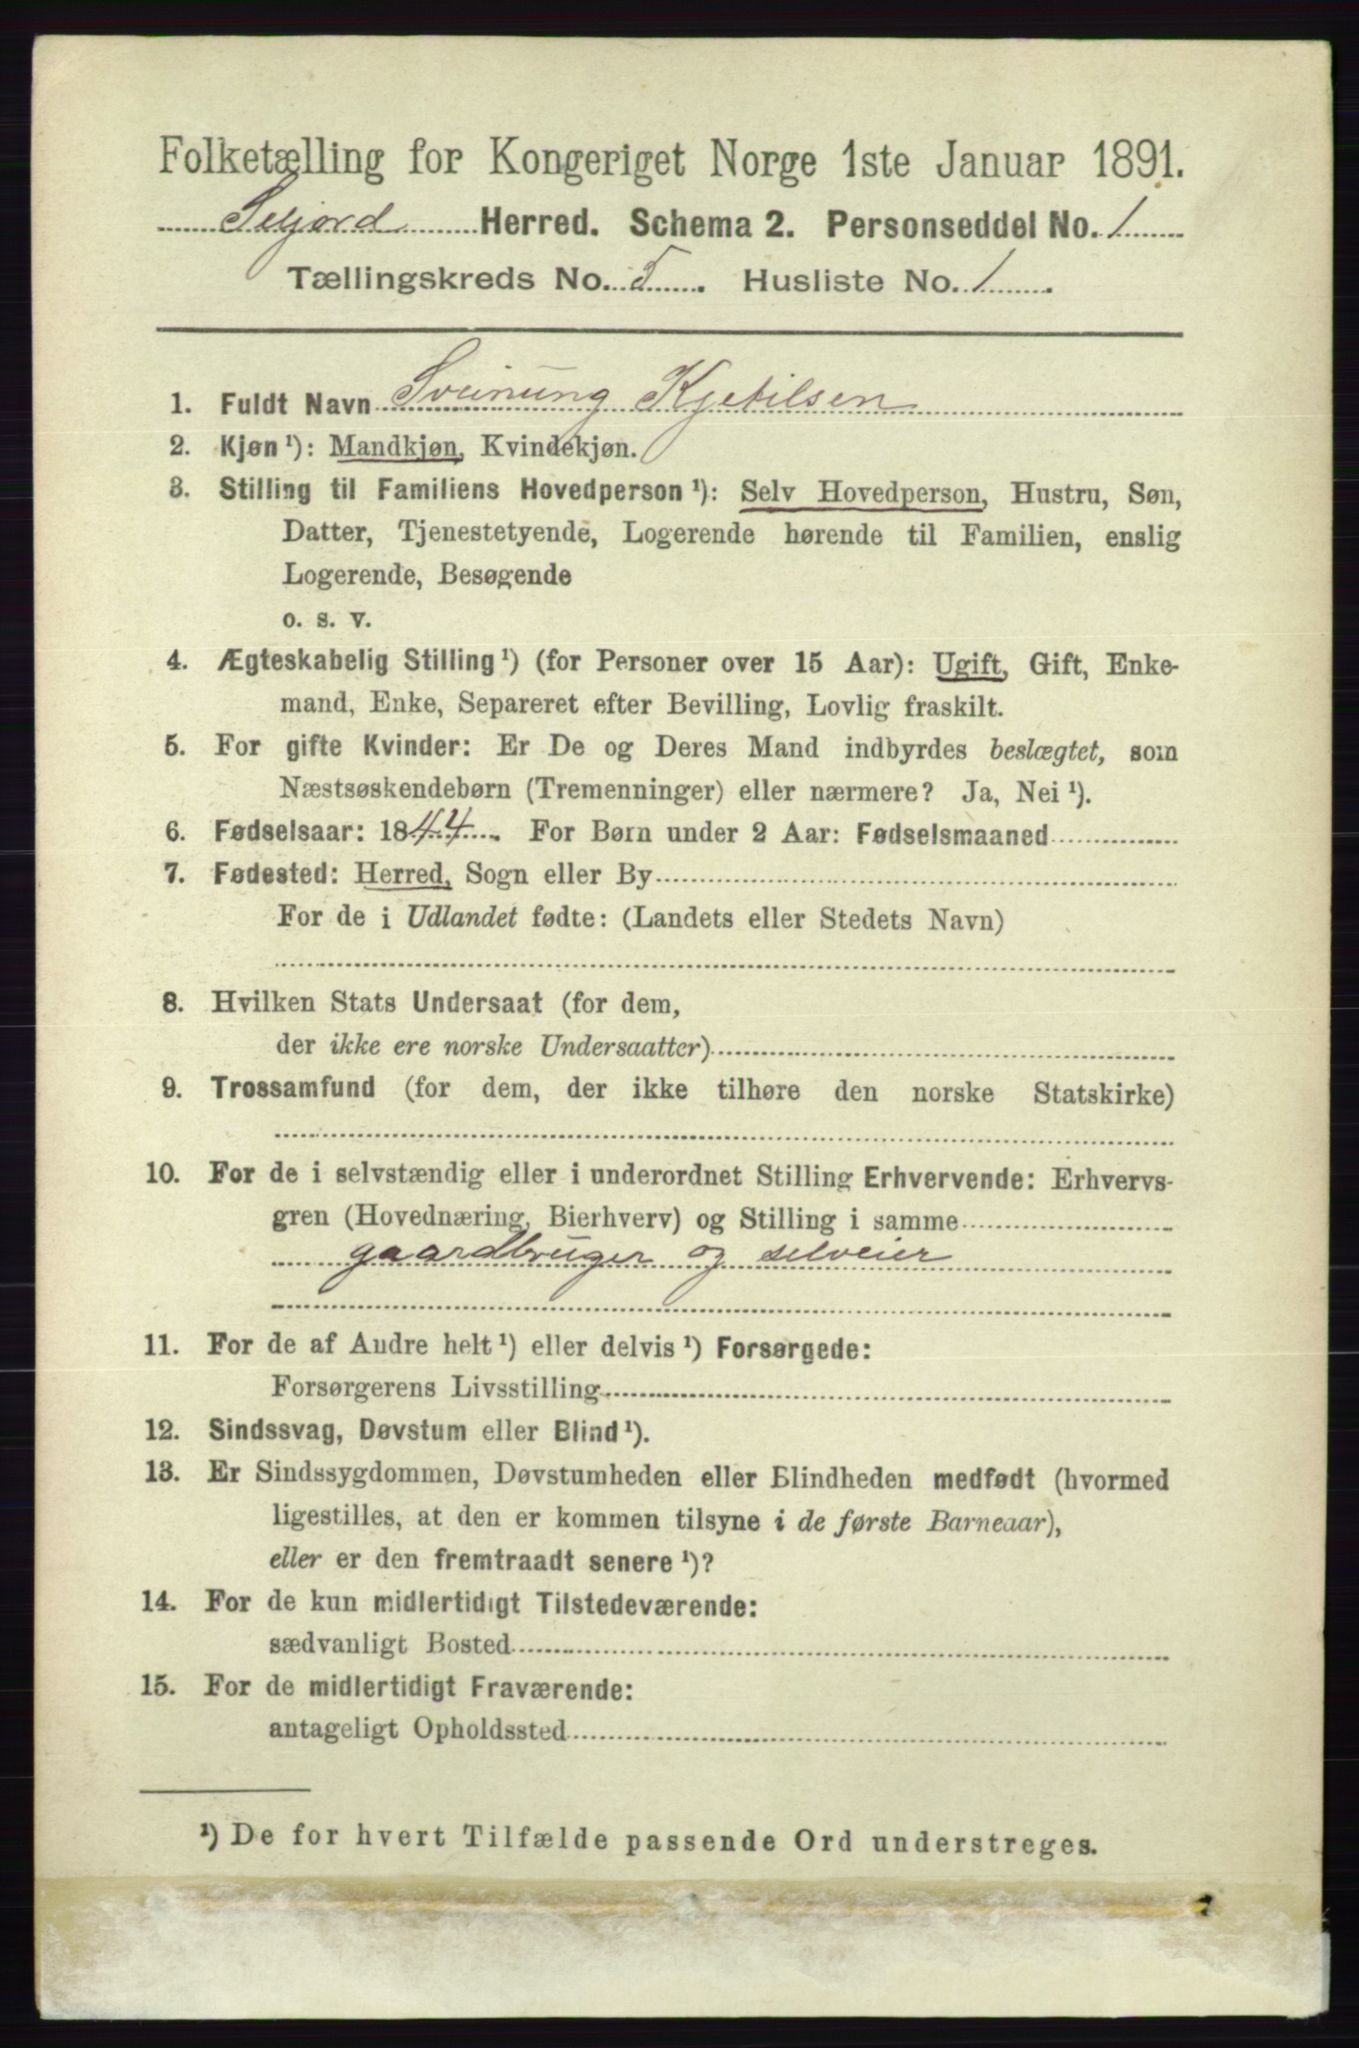 Folketælling for Kongeriget Norge 1ste Januar 1891.
Seljord Herred. Schema 2. Personseddel No. 1
Tællingskreds No. 5. Husliste No. 1.
1. Fuldt Navn Sveinung Kjetilsen
2. Kjøn¹): Mandkjøn, Kvindekjøn.
3. Stilling til Familiens Hovedperson¹): Selv Hovedperson, Hustru, Søn,
Datter, Tjenestetyende, Logerende hørende til Familien, enslig
Logerende, Besøgende
o. s. v.
4. Ægteskabelig Stilling¹) (for Personer over 15 Aar): Ugift, Gift, Enke-
mand, Enke, Separeret efter Bevilling, Lovlig fraskilt.
5. For gifte Kvinder: Er De og Deres Mand indbyrdes beslægtet, som
Næstsøskendebørn (Tremenninger) eller nærmere? Ja, Nei¹).
6. Fødselsaar: 1844. For Børn under 2 Aar: Fødselsmaaned
7. Fødested: Herred, Sogn eller By
For de i Udlandet fødte: (Landets eller Stedets Navn)
8. Hvilken Stats Undersaat (for dem,
der ikke ere norske Undersaatter)
9. Trossamfund (for dem, der ikke tilhøre den norske Statskirke)
10. For de i selvstændig eller i underordnet Stilling Erhvervende: Erhvervs-
gren (Hovednæring, Bierhverv) og Stilling i samme
gaardbruger og selveier
11. For de af Andre helt¹) eller delvis¹) Forsørgede:
Forsørgerens Livsstilling
12. Sindssvag, Døvstum eller Blind¹).
13. Er Sindssygdommen, Døvstumheden eller Blindheden medfødt (hvormed
ligestilles, at den er kommen tilsyne i de første Barneaar),
eller er den fremtraadt senere¹)?
14. For de kun midlertidigt Tilstedeværende:
sædvanligt Bosted
15. For de midlertidigt Fraværende:
antageligt Opholdssted
¹) De for hvert Tilfælde passende Ord understreges.